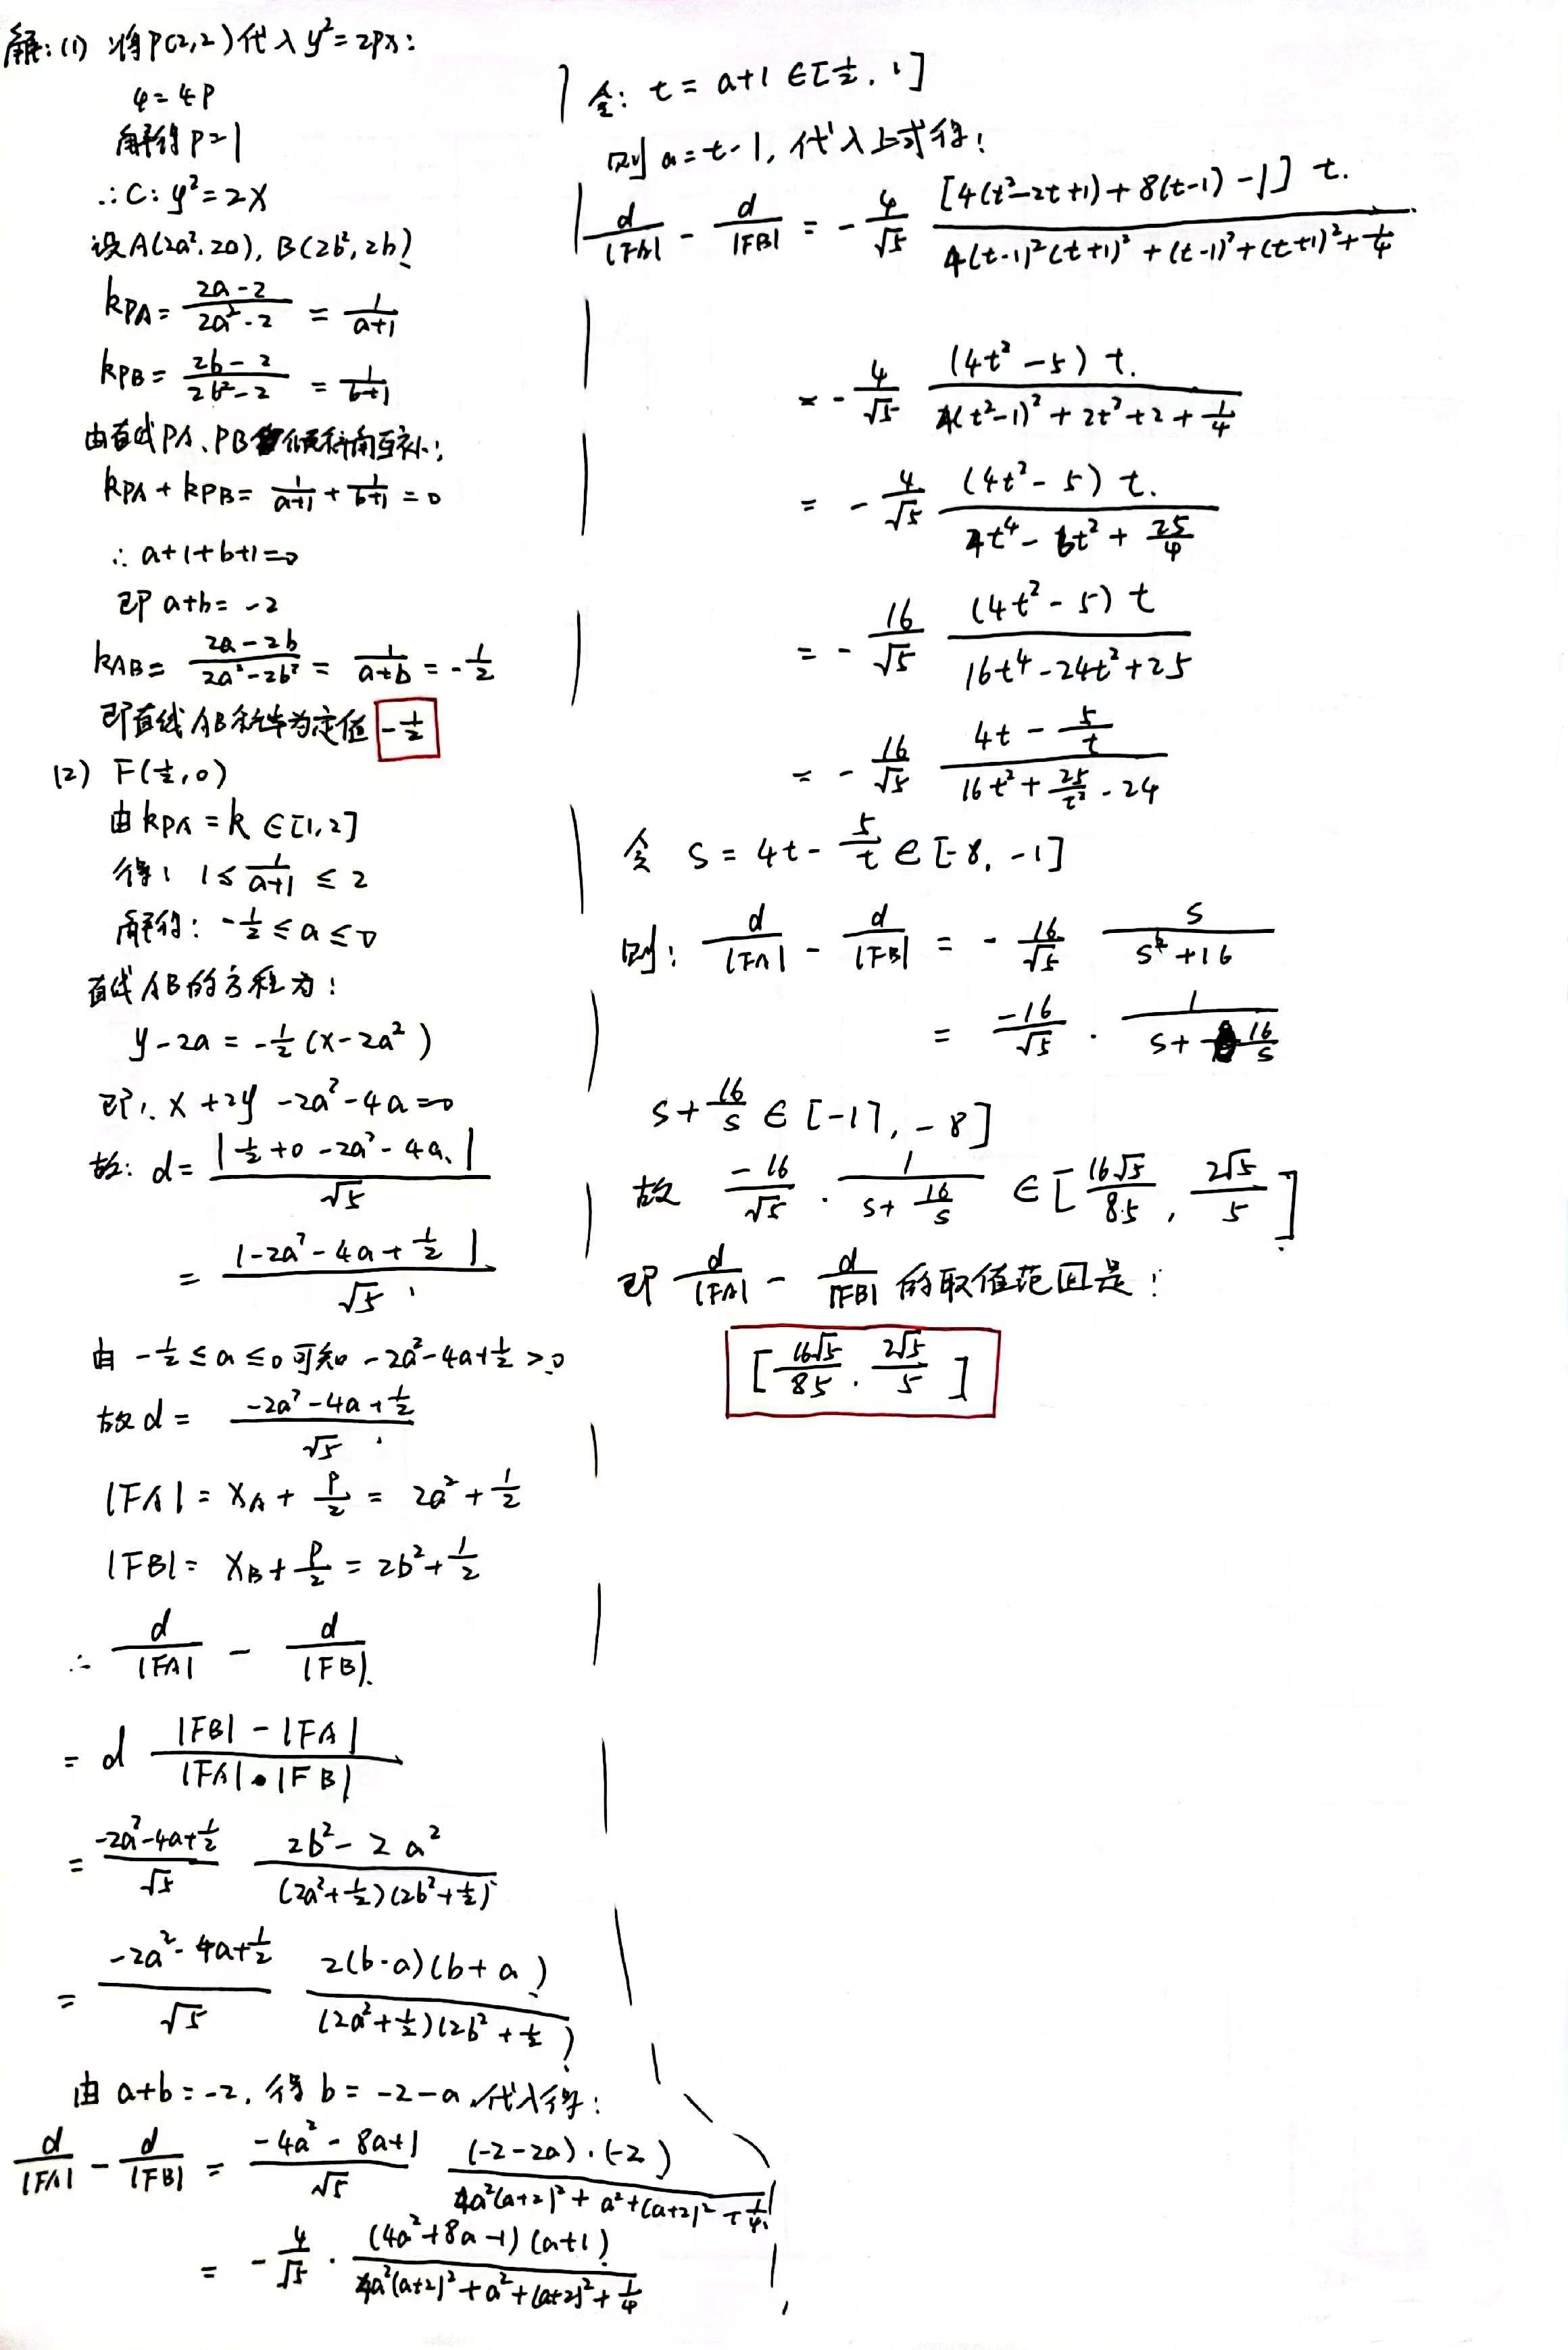 解:(1) 将P(2,2)代入y²=2px:
4=4P
解得P=1
∴C:y²=2x
设A(2a²,2a),B(2b²,2b)
kPA=\frac{2a-2}{2a²-2}=\frac{1}{a+1}
kPB=\frac{2b-2}{2b²-2}=\frac{1}{b+1}
由直线PA、PB倾斜角互补:
kPA+kPB=\frac{1}{a+1}+\frac{1}{b+1}=0
∴a+1+b+1=0
即a+b=-2
kAB=\frac{2a-2b}{2a²-2b²}=\frac{1}{a+b}=-\frac{1}{2}
即直线AB斜率为定值-\frac{1}{2}
(2) F(\frac{1}{2},0)
由kPA=k∈[1,2]
得:1≤\frac{1}{a+1}≤2
解得:-\frac{1}{2}≤a≤0
直线AB的方程为:
y-2a=-\frac{1}{2}(x-2a²)
即:x+2y-2a²-4a=0
故:d=\frac{|\frac{1}{2}+0-2a²-4a|}{√5}
=\frac{|-2a²-4a+\frac{1}{2}|}{√5}
由-\frac{1}{2}≤a≤0可知-2a²-4a+\frac{1}{2}>0
故d=\frac{-2a²-4a+\frac{1}{2}}{√5}
|FA|=xA+\frac{p}{2}=2a²+\frac{1}{2}
|FB|=xB+\frac{p}{2}=2b²+\frac{1}{2}
∴\frac{d}{|FA|}-\frac{d}{|FB|}
=d\frac{|FB|-|FA|}{|FA|•|FB|}
=\frac{-2a²-4a+\frac{1}{2}}{√5} \frac{2b²-2a²}{(2a²+\frac{1}{2})(2b²+\frac{1}{2})}
=\frac{-2a²-4a+\frac{1}{2}}{√5} \frac{2(b-a)(b+a)}{(2a²+\frac{1}{2})(2b²+\frac{1}{2})}
由a+b=-2,得b=-2-a,代入得:
\frac{d}{|FA|}-\frac{d}{|FB|}=\frac{-4a²-8a+1}{√5} \frac{(-2-2a)·(-2)}{4a²(a+2)²+a²+(a+2)²+\frac{1}{4}}
=-\frac{4}{√5}·\frac{(4a²+8a-1)(a+1)}{4a²(a+2)²+a²+(a+2)²+\frac{1}{4}}
令:t=a+1∈[\frac{1}{2},1]
则a=t-1,代入上式得:
\frac{d}{|FA|}-\frac{d}{|FB|}=-\frac{4}{√5} \frac{[4(t²-2t+1)+8(t-1)-1]t}{4(t-1)²(t+1)²+(t-1)²+(t+1)²+\frac{1}{4}}
=-\frac{4}{√5} \frac{(4t²-5)t}{4(t²-1)²+2t²+2+\frac{1}{4}}
=-\frac{4}{√5} \frac{(4t²-5)t}{4t⁴-6t²+\frac{25}{4}}
=-\frac{16}{√5} \frac{(4t²-5)t}{16t⁴-24t²+25}
=-\frac{16}{√5} \frac{4t-\frac{5}{t}}{16t²+\frac{25}{t²}-24}
令 s=4t-\frac{5}{t}∈[-8,-1]
则:\frac{d}{|FA|}-\frac{d}{|FB|}=-\frac{16}{√5} \frac{s}{s²+16}
=\frac{-16}{√5}·\frac{1}{s+\frac{16}{s}}
s+\frac{16}{s}∈[-17,-8]
故 \frac{-16}{√5}·\frac{1}{s+\frac{16}{s}}∈[\frac{16√5}{85},\frac{2√5}{5}]
即\frac{d}{|FA|}-\frac{d}{|FB|}的取值范围是:
[\frac{16√5}{85},\frac{2√5}{5}]